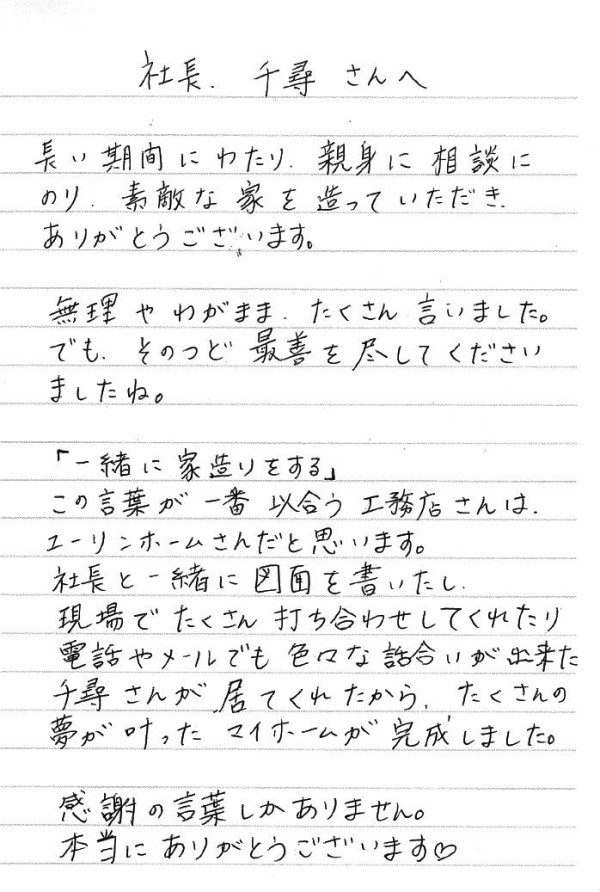 社長、千尋さんへ
長い期間にわたり、親身に相談に
のり、素敵な家を造っていただき、
ありがとうございます。
無理やわがまま、たくさん言いました。
でも、そのつど最善を尽してください
ましたね。
「一緒に家造りをする」
この言葉が一番以合う工務店さんは、
ユーリンホームさんだと思います。
社長と一緒に図面を書いたし、
現場でたくさん打ち合わせしてくれたり
電話やメールでも色々な話合いが出来た
千尋さんが居てくれたから、たくさんの
夢が叶ったマイホームが完成しました。
感謝の言葉しかありません。
本当にありがとうございます♡